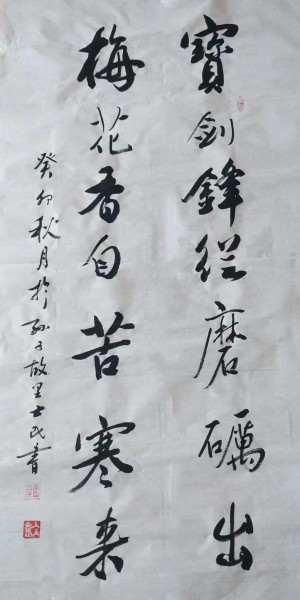 寶剑鋒從磨礪出
梅花香自苦寒来
癸卯秋月於孙子故里士民書